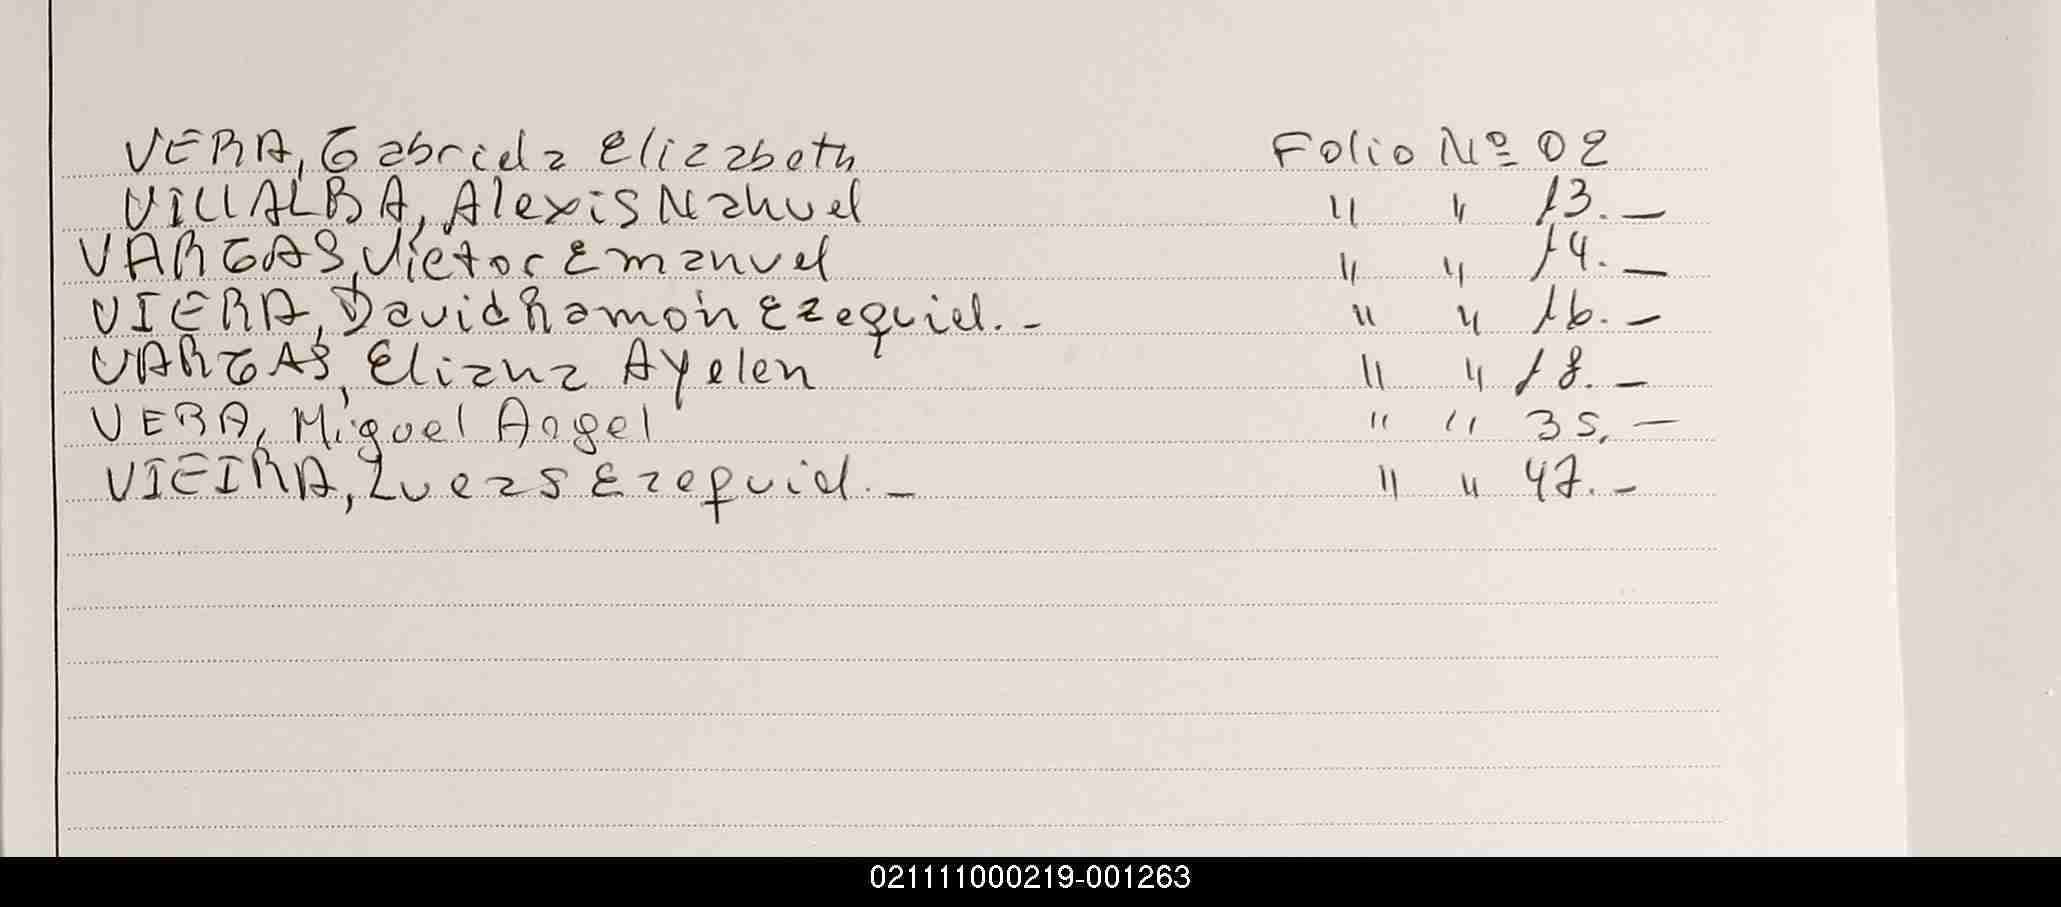 VERA, Gabriela Elizabeth Folio Nº 02
VILLALBA, Alexis Nahuel " " 13.-
VARGAS, Victor Emanuel " " 14.-
VIERA, David Ramón Ezequiel.- " " 16.-
VARGAS, Eliana Ayelen " " 18.-
VERA, Miguel Angel " " 35.-
VIEIRA, Lucas Ezequiel.- " " 47.-
021111000219-001263